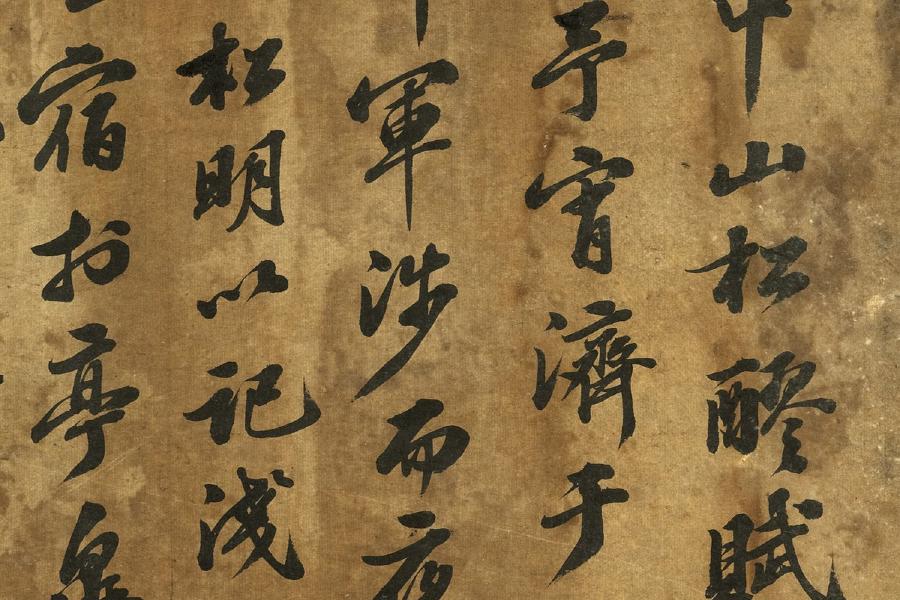 中山松醪賦
予宵濟于
軍涉而夜
松明以記淺
宿於亭皋